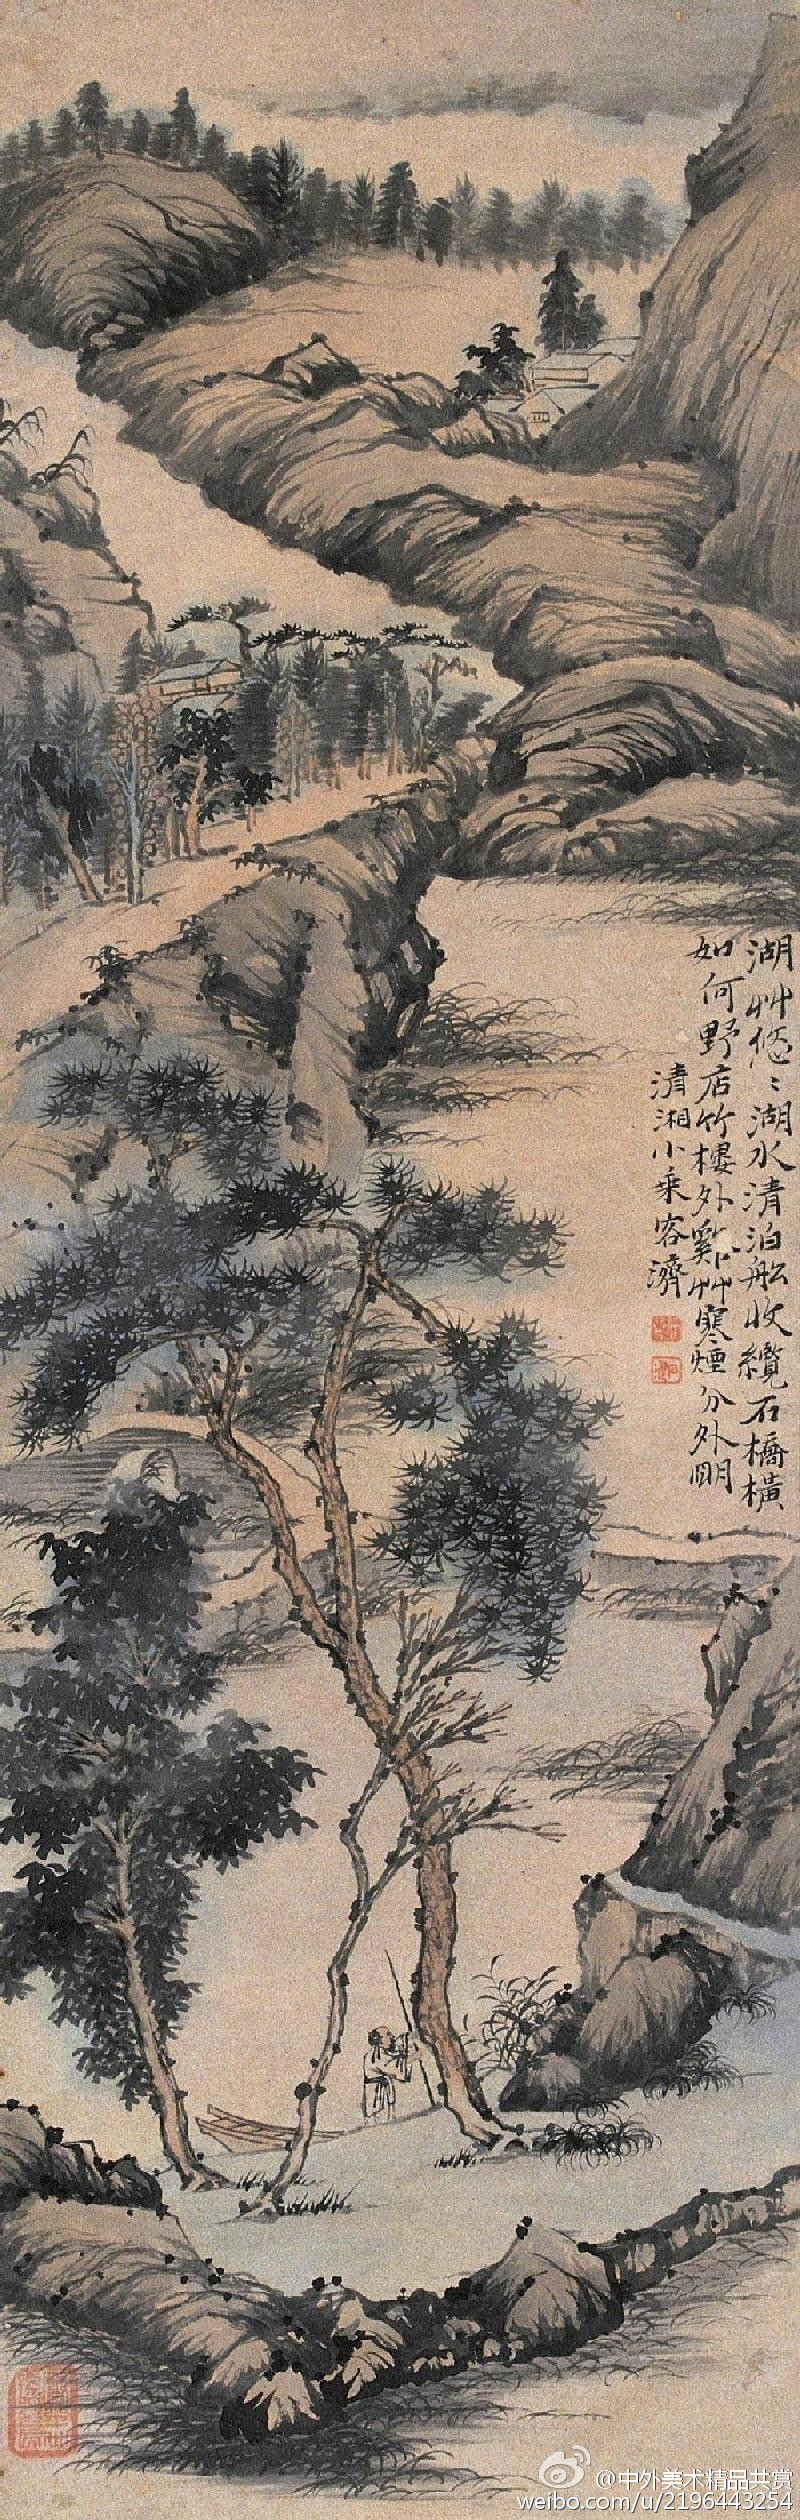 湖艸悠〻湖水清泊船收纜石橋橫
如何野店竹樓外
艸寒煙分外明
清湘小乘客濟
@中外美术精品共赏
weibo.com/u/2196443254